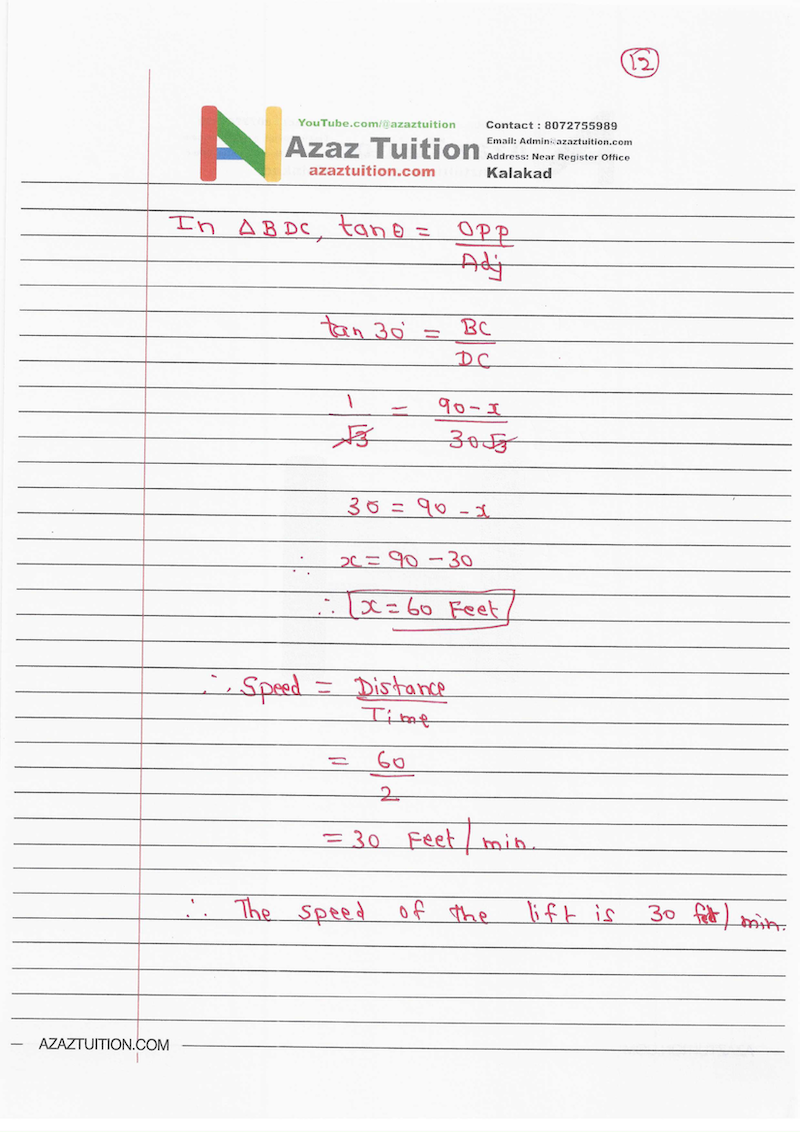 12
YouTube.com/@azaztuition
Azaz Tuition
azaztuition.com
Contact : 8072755989
Email: Admin@azaztuition.com
Address: Near Register Office
Kalakad
In △BDC, tanθ = Opp
Adj
tan 30° = BC
DC
1 = 90-x
√3 30√3
30 = 90 - x
∴ x = 90 - 30
∴ x = 60 Feet
∴ Speed = Distance
Time
= 60
2
= 30 Feet / min.
∴ The speed of the lift is 30 feet / min.
AZAZTUITION.COM